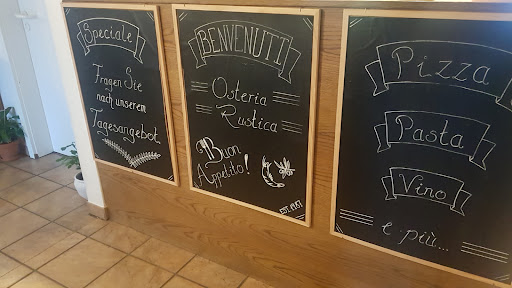 Speciale
Fragen Sie
nach unserem
Tagesangebot
BENVENUTI
Osteria
Rustica
Buon
Appetito!
Pizza
Pasta
Vino
e più...